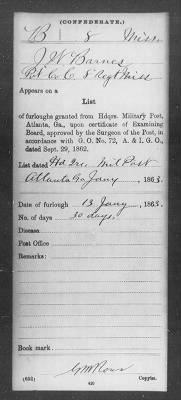 (CONFEDERATE.)
B | 8 | Miss.
J. W. Barnes
Pvt Co C, 8 Regt Miss
Appears on a
List
of furloughs granted from Hdqrs. Military Post,
Atlanta, Ga., upon certificate of Examining
Board, approved by the Surgeon of the Post, in
accordance with G. O. No. 72, A. & I. G. O.,
dated Sept. 29, 1862.
List dated Hd Qrs. Mil Post
Atlanta Ga Jany, 1863.
Date of furlough 13 Jany, 1863.
No. of days 30 days.
Disease
Post Office
Remarks:
Book mark:
Copyist.